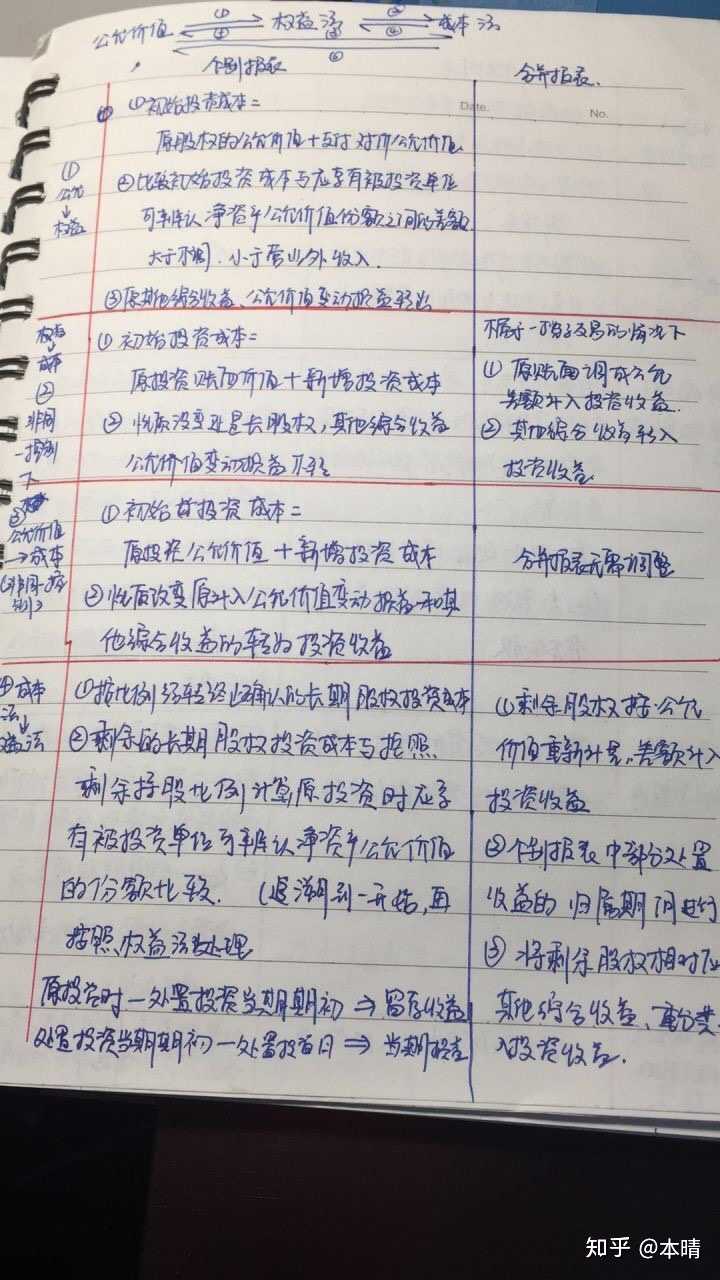 公允价值 ① ④ 权益法 ② ④ 成本法
③
⑤
个别报表
合并报表
Date.
No.
① 公允 → 权益
①初始投资成本=
原股权的公允价值+支付对价公允价值
②比较初始投资成本与应享有被投资单位
可辨认净资产公允价值份额之间的差额
大于不调.小于营业外收入.
③原其他综合收益、公允价值变动损益转出
权益 → 成本 ② 非同一控制下
①初始投资成本=
原投资账面价值+新增投资成本
②性质没变还是长股权,其他综合收益
公允价值变动损益不转
不属于一揽子交易的情况下
①原账面调成公允
差额计入投资收益.
②其他综合收益转入
投资收益
③ 公允价值 → 成本 (非同一控制)
①初始投资成本=
原投资公允价值+新增投资成本
②性质改变原计入公允价值变动损益和其
他综合收益的转为投资收益
合并报表无需调整
④成本法 → 权益法
①按比例结转终止确认的长期股权投资成本
②剩余的长期股权投资成本与按照
剩余持股比例计算原投资时应享
有被投资单位可辨认净资产公允价值
的份额比较.(追溯到一开始,再
按照权益法处理
原投资时—处置投资当期期初 ⇒ 留存收益
处置投资当期期初—处置投资日 ⇒ 当期损益
①剩余股权按公允
价值重新计量.差额计入
投资收益
②个别报表中部分处置
收益的归属期间进行
③将剩余股权相对应
其他综合收益、重分类
入投资收益.
知乎 @本晴